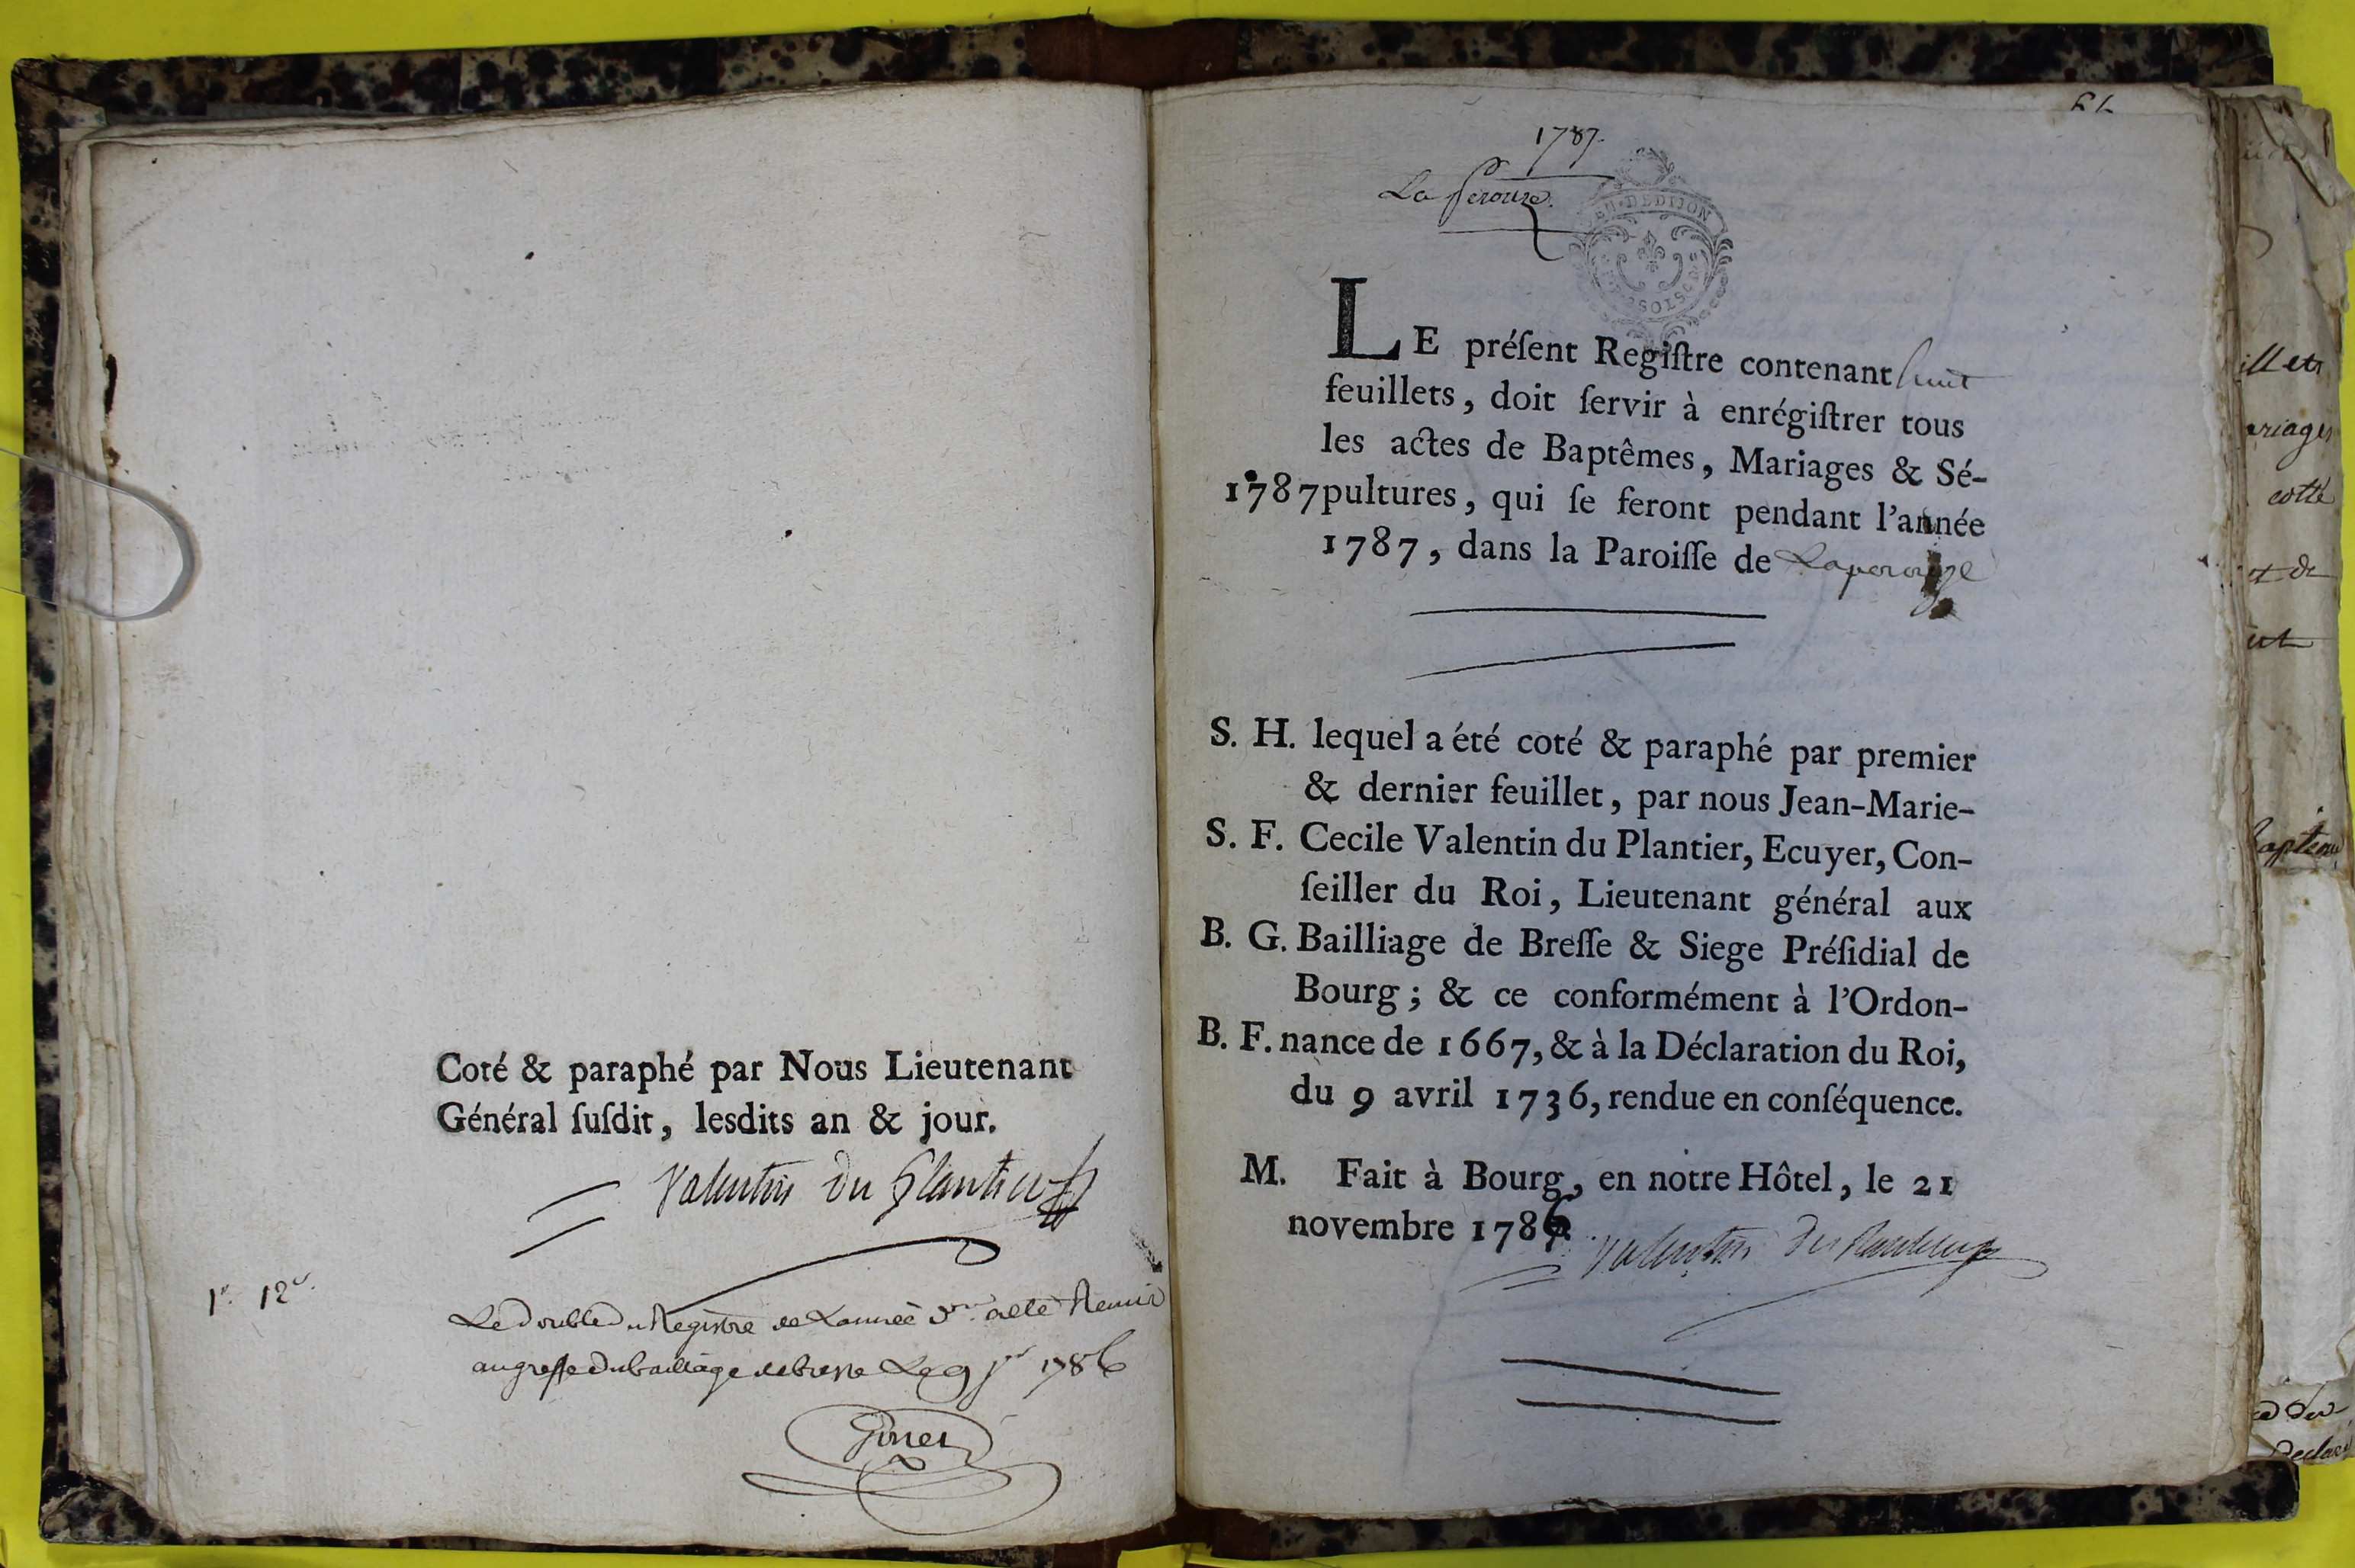 Coté & paraphé par Nous Lieutenant
Général ſuſdit, lesdits an & jour.
Valentin du Plantier
1er. 12e.
Le double du Registre de Lannée dre. a eté Remis
au greffe du bailliage de bresse Le 9 jer 1786
1787.
La Perouze.
DE DIJON
LE préſent Regiſtre contenant huit
feuillets, doit ſervir à enrégiſtrer tous
les actes de Baptêmes, Mariages & Sé-
1787 pultures, qui ſe feront pendant l'année
1787, dans la Paroiſſe de Laperouze
S. H. lequel a été coté & paraphé par premier
& dernier feuillet, par nous Jean-Marie-
S. F. Cecile Valentin du Plantier, Ecuyer, Con-
ſeiller du Roi, Lieutenant général aux
B. G. Bailliage de Breſſe & Siege Préſidial de
Bourg; & ce conformément à l'Ordon-
B. F. nance de 1667, & à la Déclaration du Roi,
du 9 avril 1736, rendue en conſéquence.
M. Fait à Bourg, en notre Hôtel, le 21
novembre 1786.
Valentin du Plantier